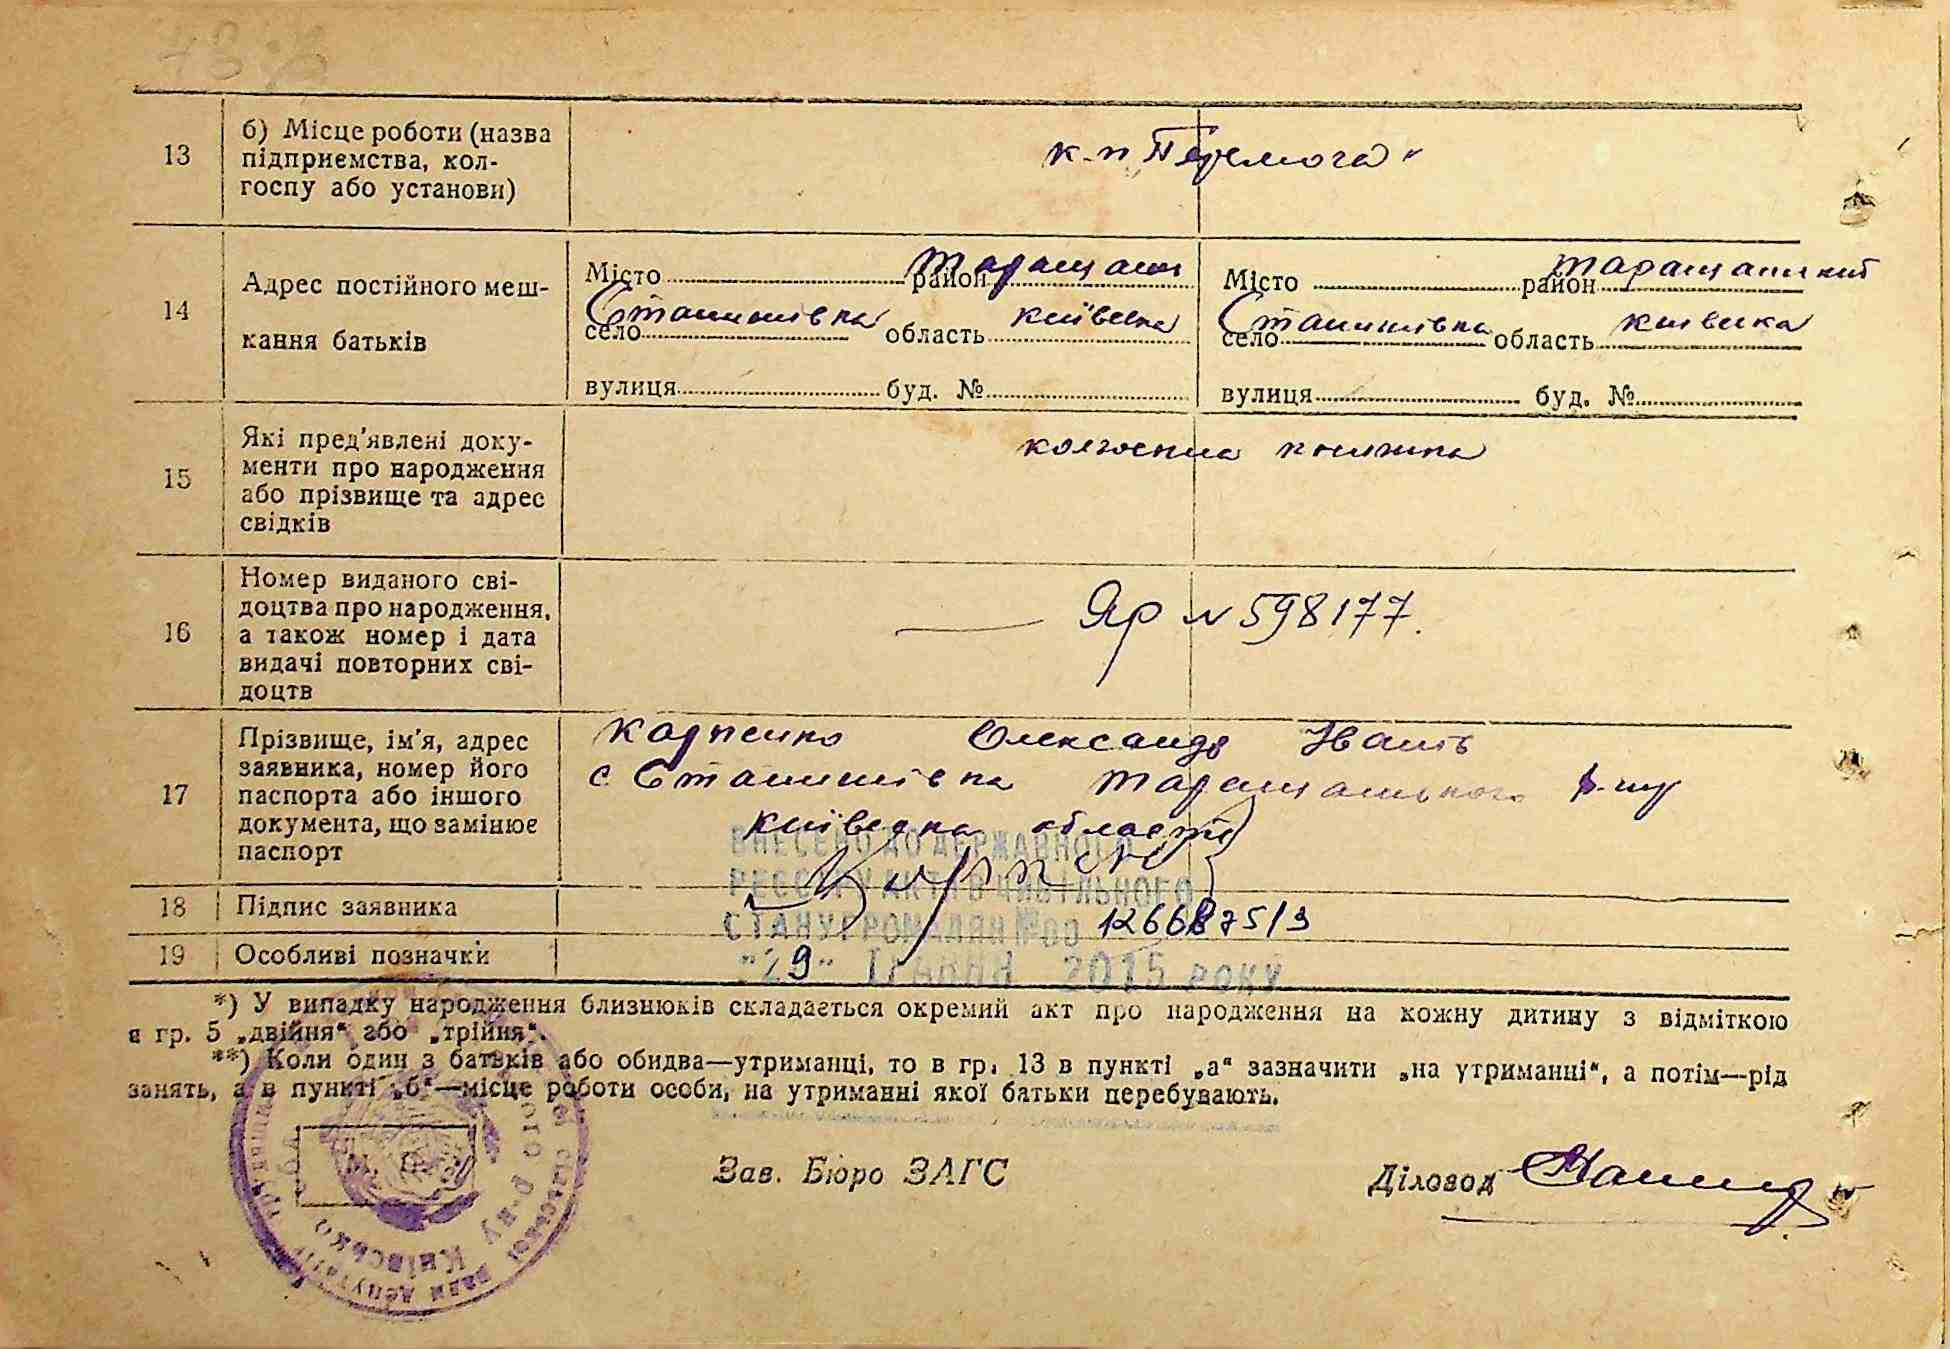 13
б) Місце роботи (назва
підприємства, кол-
госпу або установи)
к-п „Перемога"
14
Адрес постійного меш-
кання батьків
Місто район Таращан
село Станишівка область київська
вулиця буд. №
Місто район Таращанский
село Станишівка область київска
вулиця буд. №
15
Які пред'явлені доку-
менти про народження
або прізвище та адрес
свідків
колгоспна книжка
16
Номер виданого сві-
доцтва про народження,
а також номер і дата
видачі повторних сві-
доцтв
— Яр № 598177.
17
Прізвище, ім'я, адрес
заявника, номер його
паспорта або іншого
документа, що замінює
паспорт
Карпенко Олександр Іванів
с Станишівка Таращанського р-ну
київська області
18
Підпис заявника
19
Особливі позначки
ВНЕСЕНО ДО ДЕРЖАВНОГО
РЕЄСТРУ АКТІВ ЦИВІЛЬНОГО
СТАНУ ГРОМАДЯН № 00
"29" ТРАВНЯ 2015 РОКУ
*) У випадку народження близнюків складається окремий акт про народження на кожну дитину з відміткою
в гр. 5 „двійня" або „трійня".
**) Коли один з батьків або обидва—утриманці, то в гр. 13 в пункті „а" зазначити „на утриманні", а потім—рід
занять, а в пункті „б"—місце роботи особи, на утриманні якої батьки перебувають.
М. П.
Зав. Бюро ЗАГС
Діловод